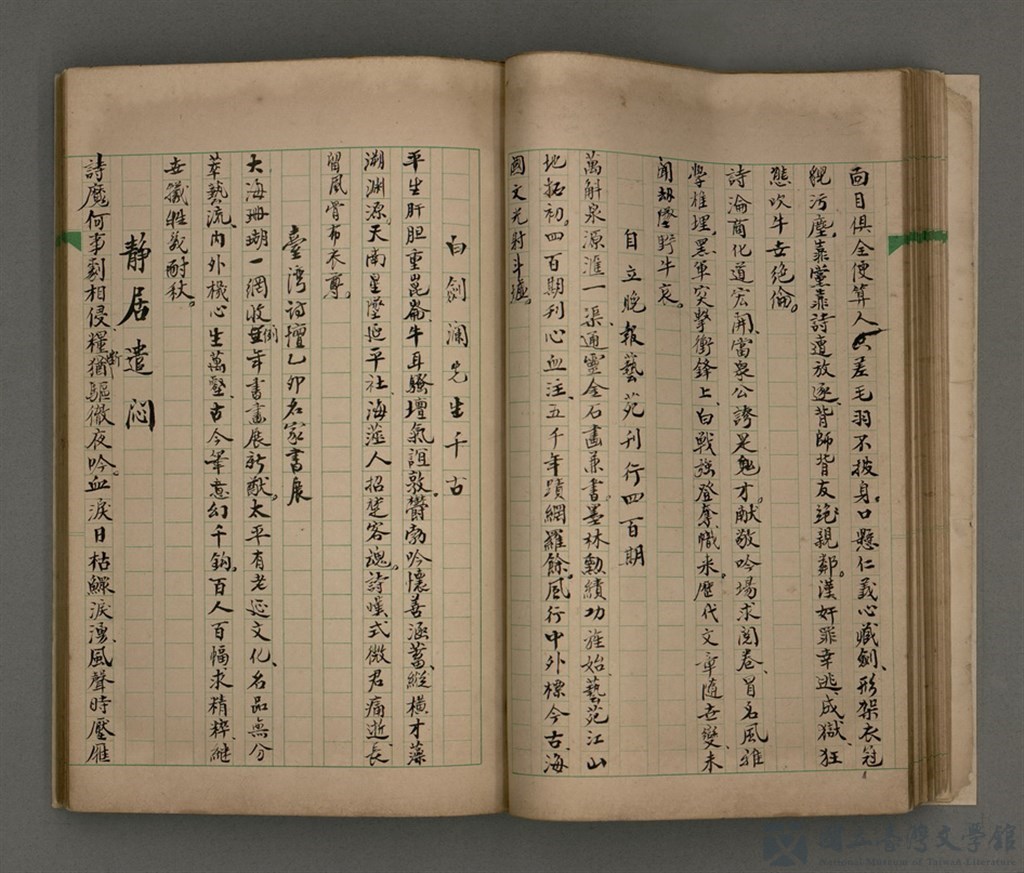 面目俱全便算人。只差毛羽不披身。口懸仁義心藏劍、形架衣冠
貌污塵。靠黨靠詩遭放逐、背師背友絕親鄰。漢奸罪幸逃成獄、狂
態吹牛世絕倫。
詩淪商化道宏開、富衆公誇是鬼才。献敬吟場求閱卷、冒名風雅
學椎埋。黑軍突擊衝鋒上、白戰強登奪幟來。歷代文章隨世變、未
聞胡壘野牛哀。
自立晚報藝苑刊行四百期
萬斛泉源滙一渠、通靈金石畫兼書。墨林勳績功旌始、藝苑江山
地拓初。四百期刊心血注、五千年蹟網羅餘。風行中外標今古、海
國文光射斗墟
白劍瀾先生千古
平生肝胆重崑崙、牛耳騷壇氣誼敦。欝勃吟懷善涵蓄、縱橫才藻
溯淵源。天南星墜延平社、海澨人招楚客魂。詩嘆式微君痛逝、長
留風骨布衣尊。
臺灣詩壇乙卯名家書展
大海珊瑚一網收、年書畫展新猷。太平有老延文化、名品無分
萃藝流。內外機心生萬壑、古今筆意幻千鈎。百人百幅求精粹、継
世犧牲義酎秋。
靜居遣悶
詩魔何事劇相侵、糧斷猶驅徹夜吟。血淚日枯鰥淚湧、風聲時壓雁
國立臺灣文學館
National Museum of Taiwan Literature